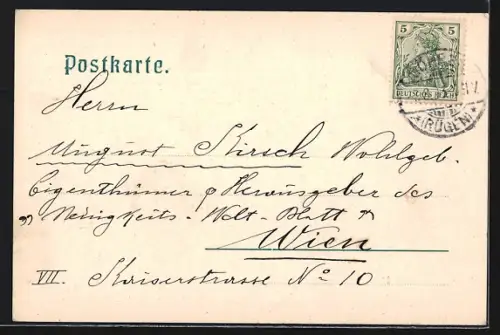 Postkarte.
5 5
DEUTSCHES REICH
* (RÜGEN) *
Herrn
August Kirsch Wohlgeb.
Eigenthümer & Herausgeber des
„Neuigkeits-Welt-Blatt“
Wien
VII. Kaiserstrasse No 10